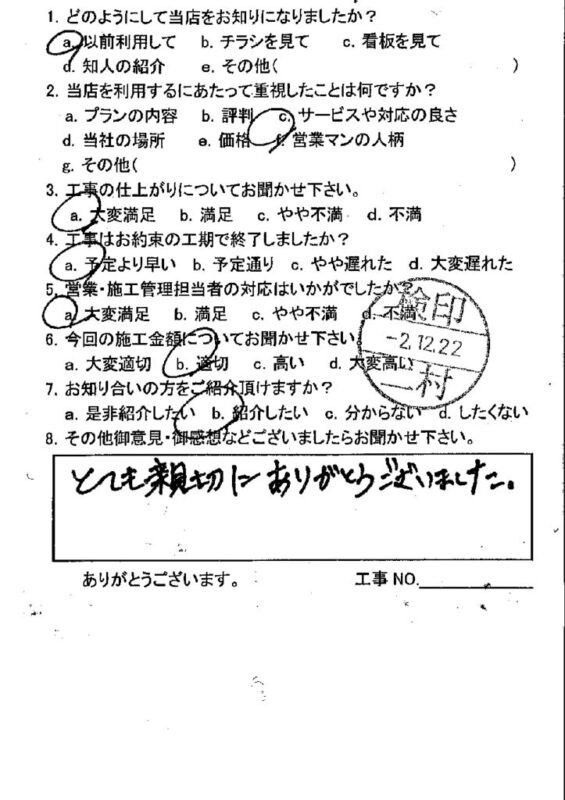 1. どのようにして当店をお知りになりましたか？
a. 以前利用して　b. チラシを見て　c. 看板を見て
d. 知人の紹介　e. その他(　)
2. 当店を利用するにあたって重視したことは何ですか？
a. プランの内容　b. 評判　c. サービスや対応の良さ
d. 当社の場所　e. 価格　f. 営業マンの人柄
g. その他(　)
3. 工事の仕上がりについてお聞かせ下さい。
a. 大変満足　b. 満足　c. やや不満　d. 不満
4. 工事はお約束の工期で終了しましたか？
a. 予定より早い　b. 予定通り　c. やや遅れた　d. 大変遅れた
5. 営業・施工管理担当者の対応はいかがでしたか？
a. 大変満足　b. 満足　c. やや不満　d. 不満
検印
-2.12.22
二村
6. 今回の施工金額についてお聞かせ下さい
a. 大変適切　b. 適切　c. 高い　d. 大変高い
7. お知り合いの方をご紹介頂けますか？
a. 是非紹介したい　b. 紹介したい　c. 分からない　d. したくない
8. その他御意見・御感想などございましたらお聞かせ下さい。
とても親切にありがとうございました。
ありがとうございます。　工事NO.